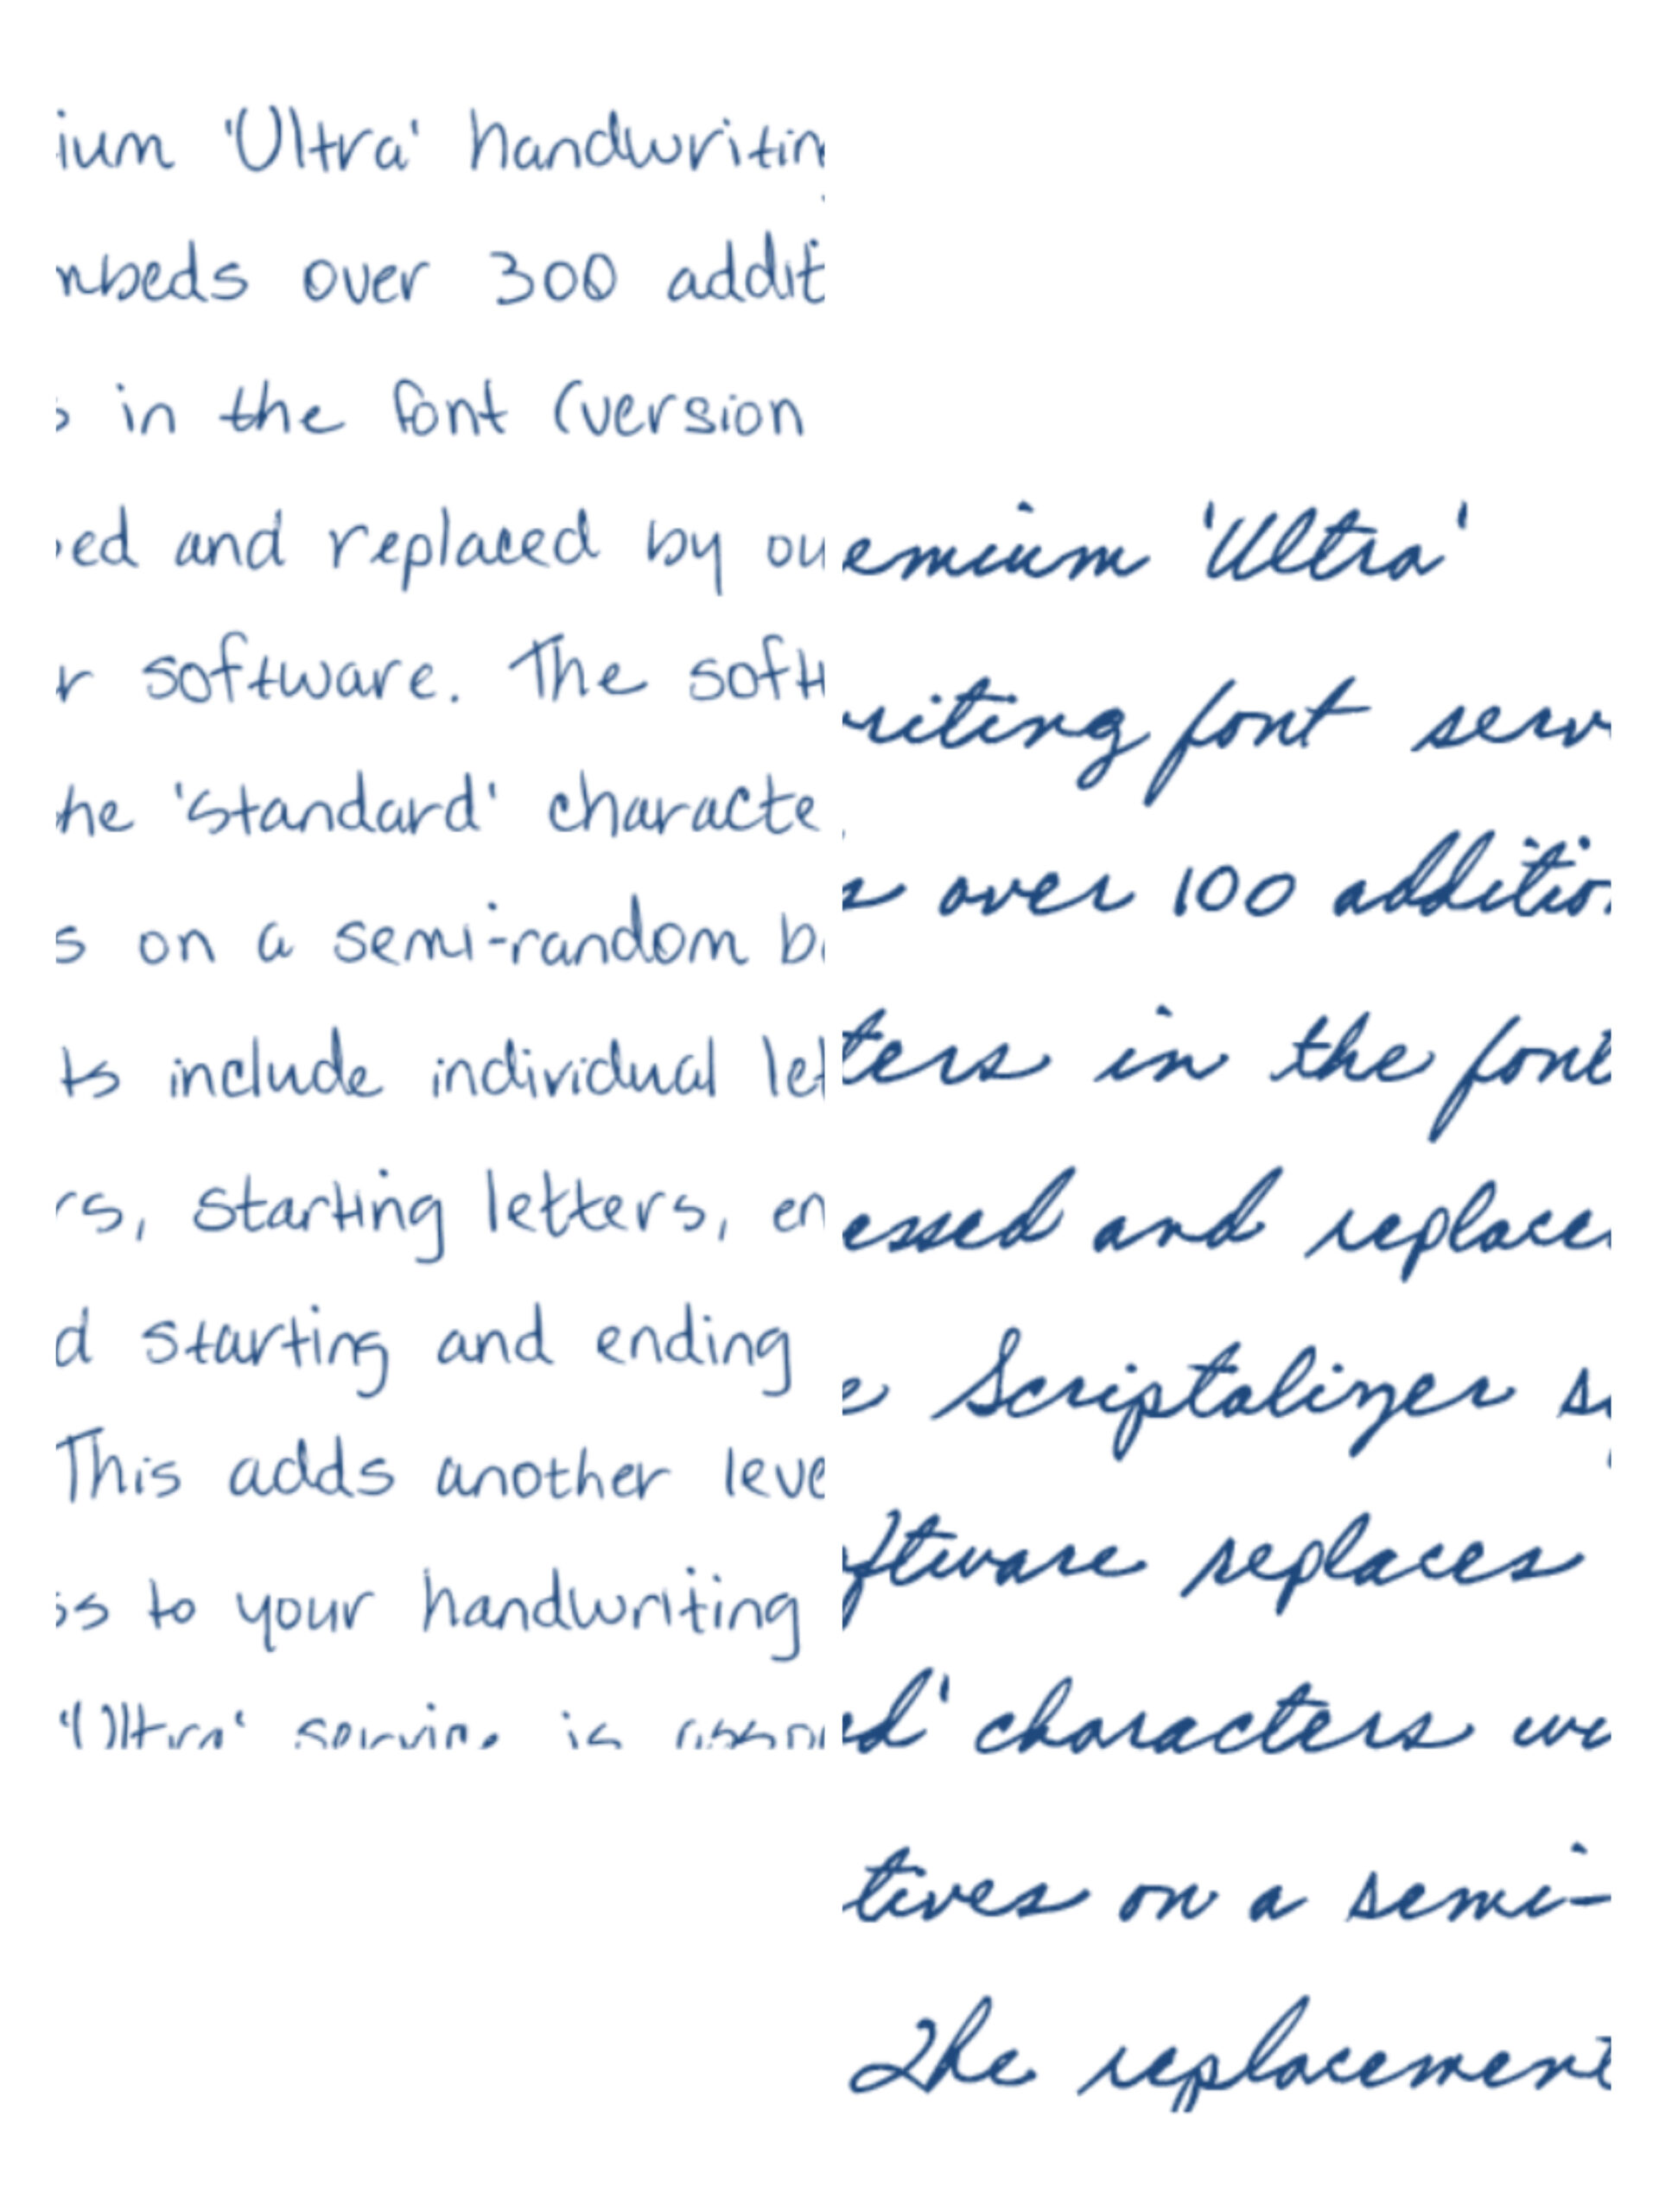 ium 'Ultra' handwritin
nbeds over 300 addit
s in the font (version
ed and replaced by ou
r software. The softw
he 'standard' characte
s on a semi-random b
ts include individual let
rs, starting letters, en
d starting and ending
This adds another leve
ss to your handwriting
'Ultra' service is
emium 'Ultra'
riting font serv
s over 100 addition
ters in the font
essed and replace
e Scriptalizer s
ftware replaces
d' characters w
tives on a semi-
The replacement